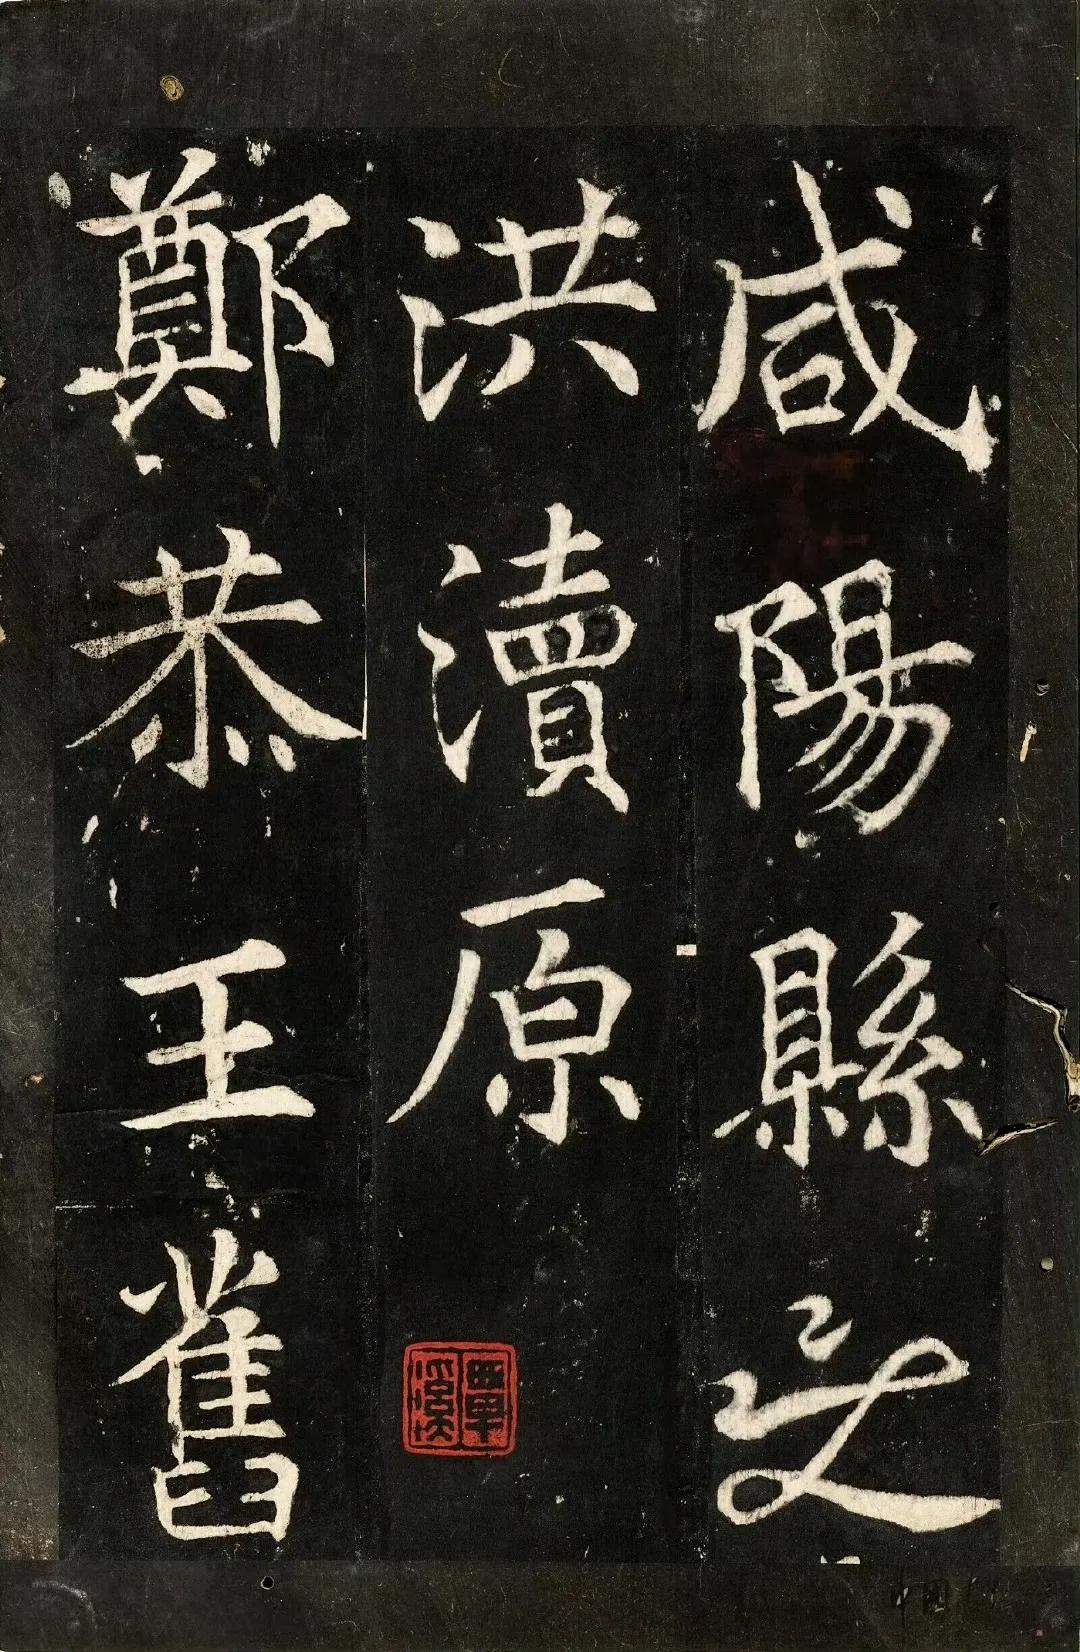 咸陽縣之
洪瀆原
鄭恭王舊